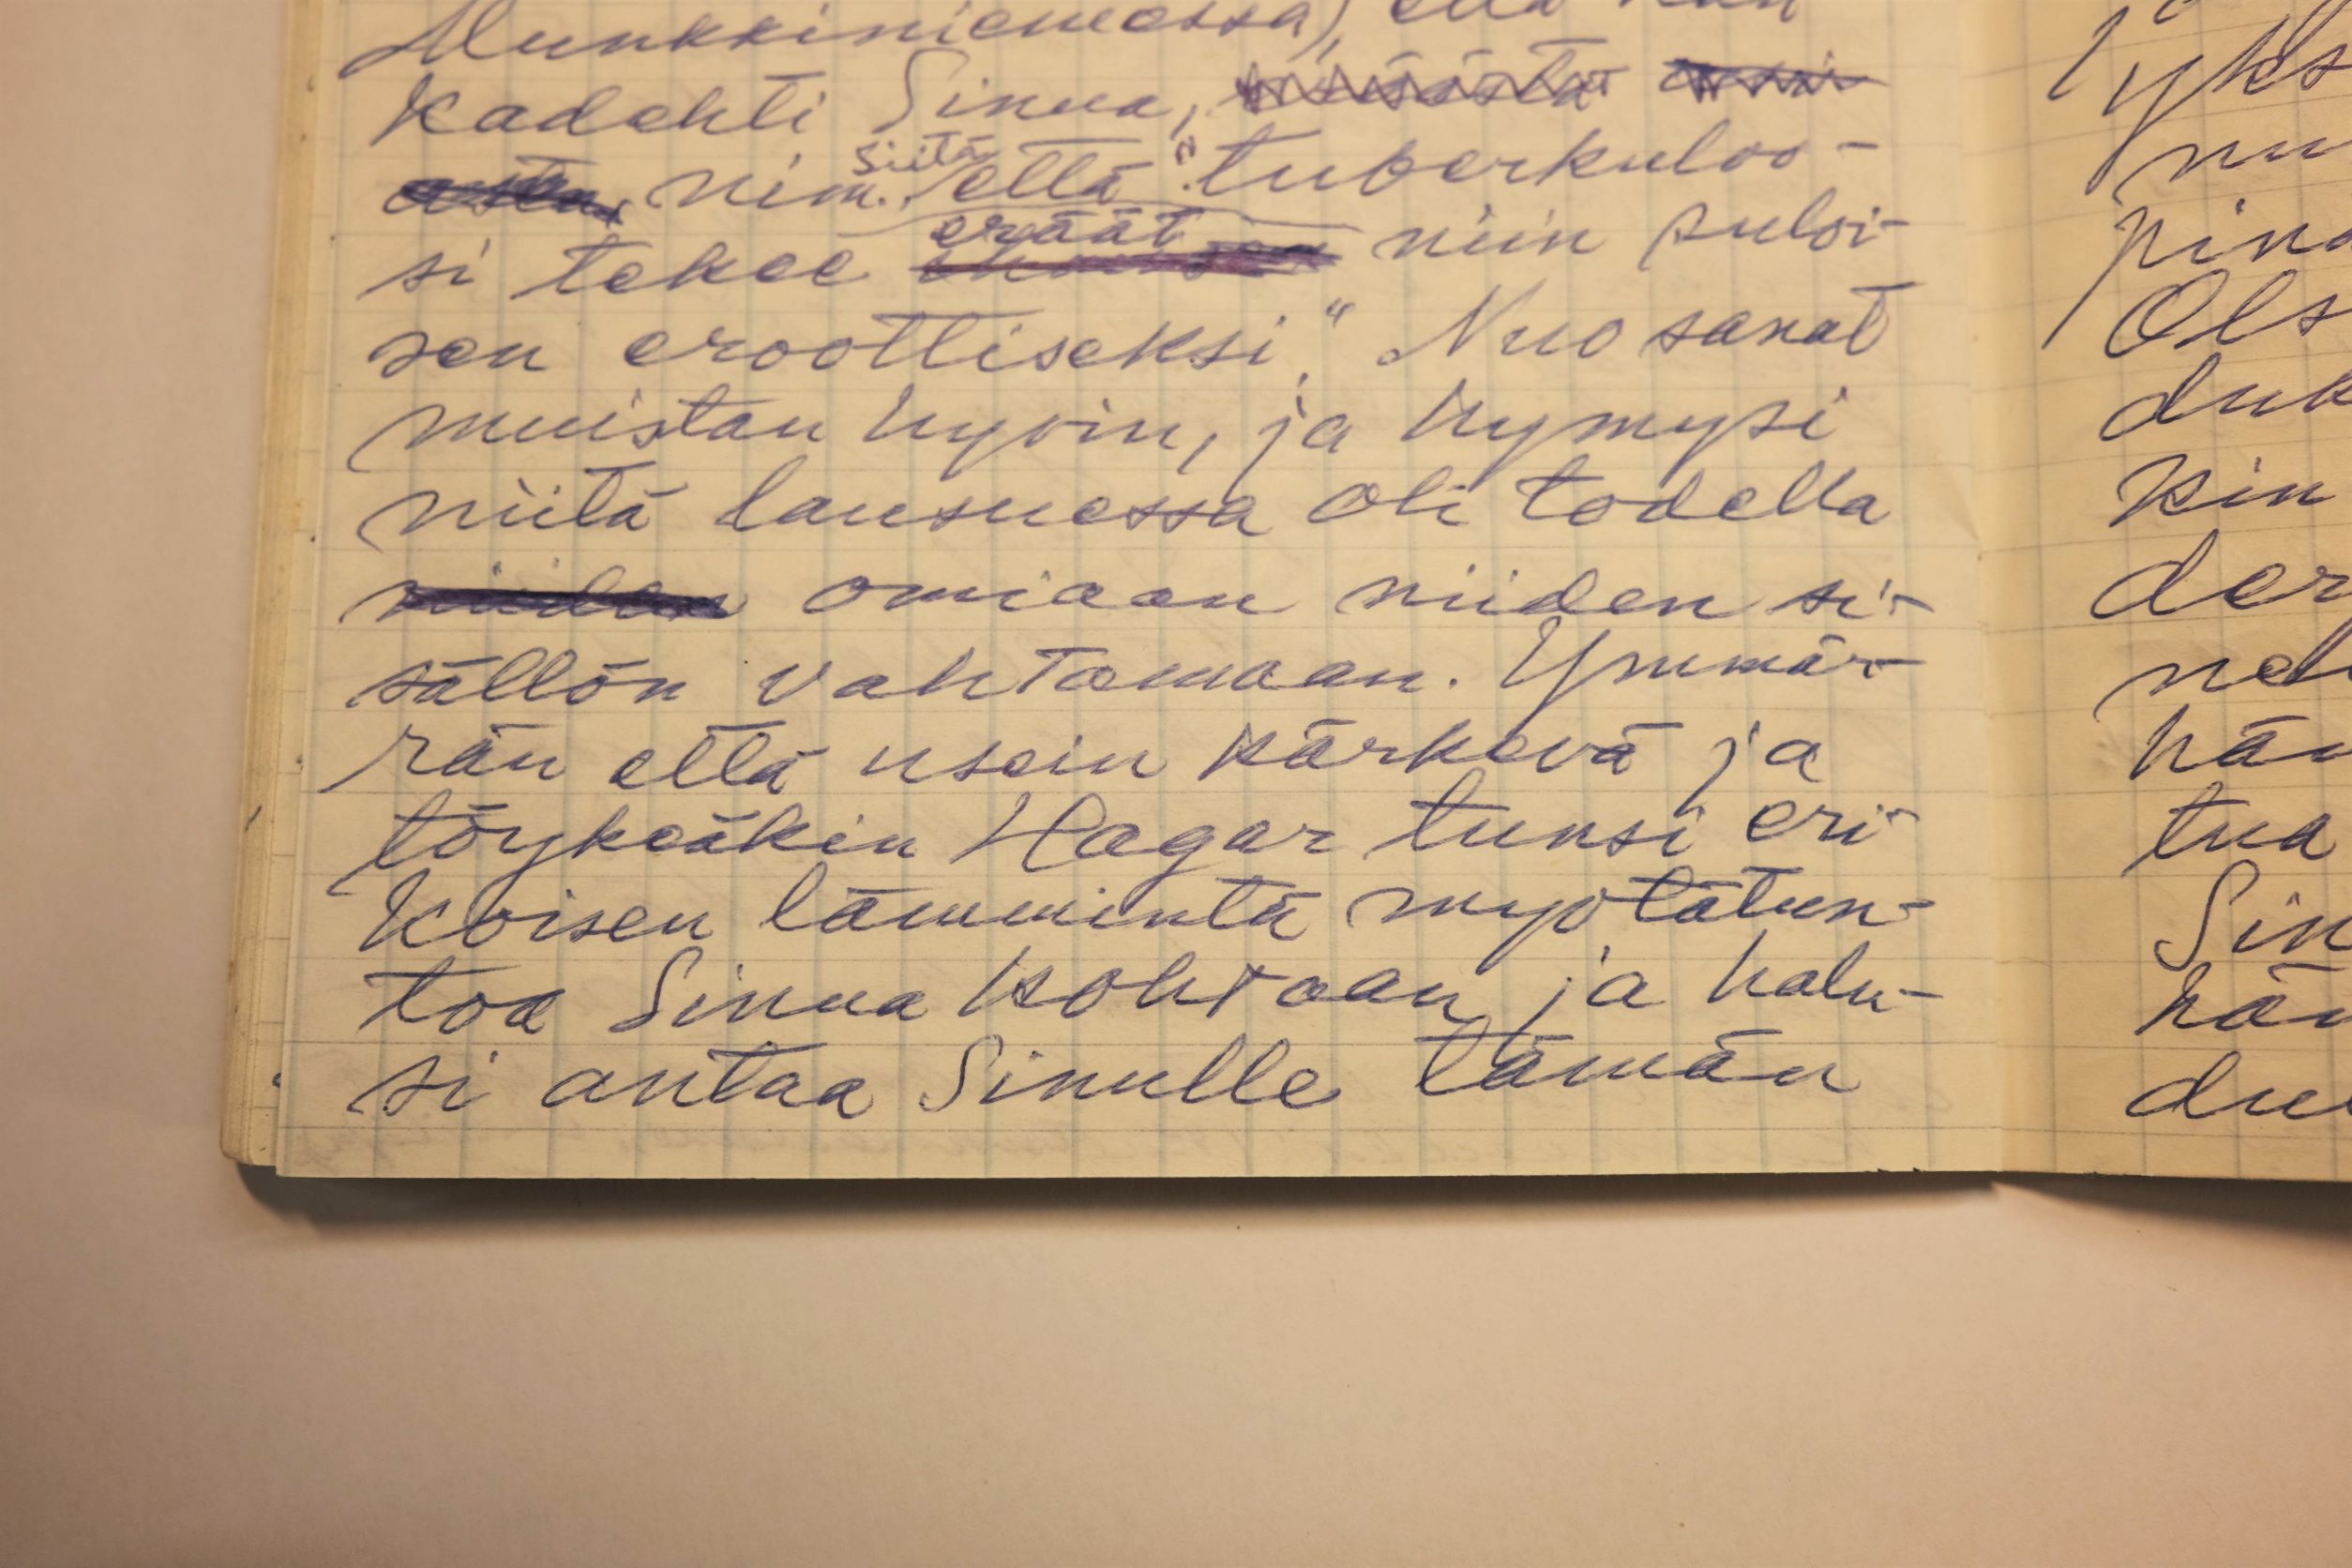 Munkkiniemessa), että hän
kadehti Sinua,
siitä
nim. että "tuberkuloo-
eräät
si tekee niin suloi-
sen eroottiseksi." Nuo sanat
muistan hyvin, ja hymysi
niitä lausuessa oli todella
niiden omiaan niiden si-
sällön vahtamaan. Ymmär-
rän että usein kärkevä ja
töykeäkin Hagar tunsi eri-
koisen lämmintä myötätun-
toa Sinua kohtaan ja halu-
si antaa Sinulle tämän
yks
nu
pin
Ols
duk
kin
der
neh
hän
tua
Sin
hän
du